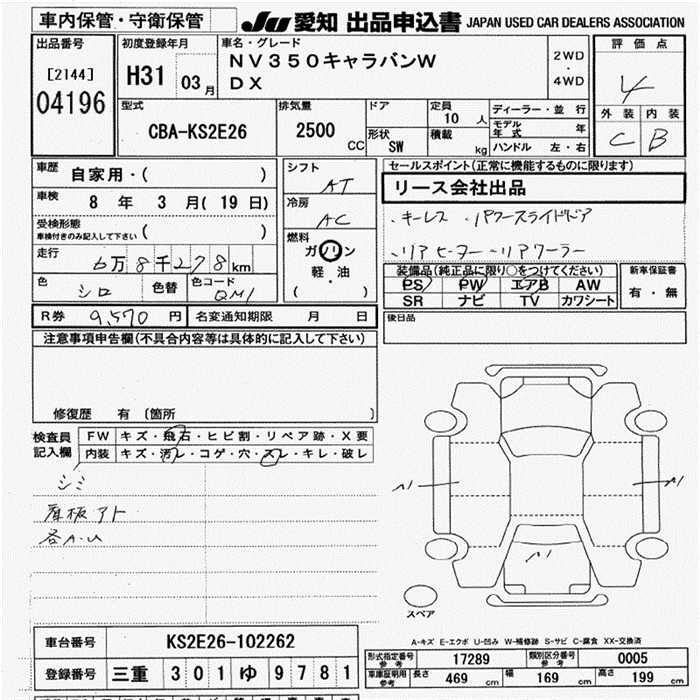 車内保管・守衛保管
JU 愛知 出品申込書 JAPAN USED CAR DEALERS ASSOCIATION
出品番号
[2144]
04196
初度登録年月
H31 03月
車名・グレード
NV350キャラバンW
DX
2WD
・
4WD
評価点
4
外装 内装
C B
型式
CBA-KS2E26
排気量
2500 CC
ドア
形状
SW
定員
10 人
積載
kg
ディーラー・並行
モデル年式 年
ハンドル 左・右
車歴
自家用・( )
車検
8 年 3 月(19日)
受検形態
車検付きのみ記入して下さい ( )
走行
6万8千278km
色
シロ
色替
色コード
QM1
シフト
AT
冷房
AC
燃料
ガソリン
軽・油
( )
セールスポイント(正常に機能するものに限ります)
リース会社出品
・キーレス ・パワースライドドア
・リアヒーター・リアクーラー
装備品(純正品に限り○をつけてください)
PS PW エアB AW
SR ナビ TV カワシート
新車保証書
有・無
R券 9,570 円
名変通知期限 月 日
後日品
注意事項申告欄(不具合内容等は具体的に記入して下さい)
修復歴 有 〔箇所 〕
検査員
記入欄
FW キズ・飛石・ヒビ割・リペア跡・X要
内装 キズ・汚レ・コゲ・穴・スレ・キレ・破レ
シミ
看板アト
各A.U
A1 A1
A1
スペア
A-キズ E-エクボ U-凹み W-補修跡 S-サビ C-腐食 XX-交換済
車台番号 KS2E26-102262
登録番号 三重 301 ゆ 9781
形式指定番号
参考
17289
類別区分番号
参考
0005
車庫証明用
参考
長さ 469 cm
幅 169 cm
高さ 199 cm